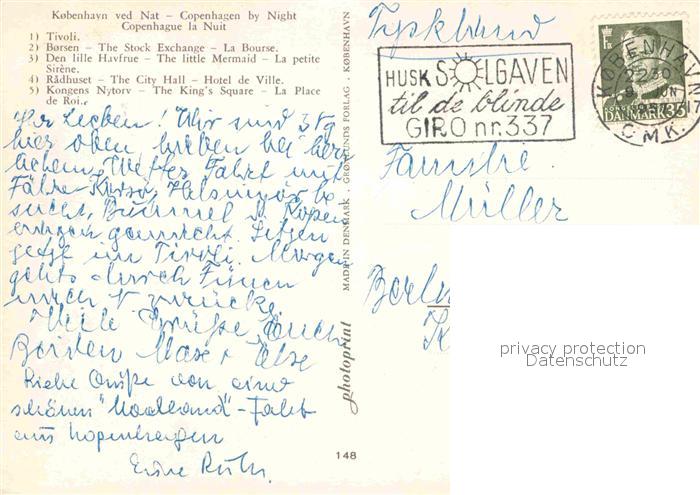 København ved Nat – Copenhagen by Night
Copenhague la Nuit
1) Tivoli.
2) Børsen – The Stock Exchange – La Bourse.
3) Den lille Havfrue – The little Mermaid – La petite
Sirène.
4) Rådhuset – The City Hall – Hotel de Ville.
5) Kongens Nytorv – The King's Square – La Place
de Roi.
Ihr Lieben! Wir sind 3 Tg
hier oben, haben bei herr
lichem Wetter Fahrt mit
Fähre Helsingör be
sucht, Bummel d. Kopen
gemacht. Sitzen
jetzt im Tivoli. Morgen
gehts durch Fünen
nach zurück
Viele Grüße Euch
Beiden Max + Else
Liebe Grüße von einer
schönen - Fahrt
aus Kopenhagen
Eure Ruth.
MADE IN DENMARK · GRØNLUNDS FORLAG · KØBENHAVN
photoprint
148
Tyskland
HUSK SOLGAVEN
til de blinde
GIRO nr. 337
KØBENHAVN
C
MK.
DANMARK 35
Familie
Müller
Berlin
privacy protection
Datenschutz